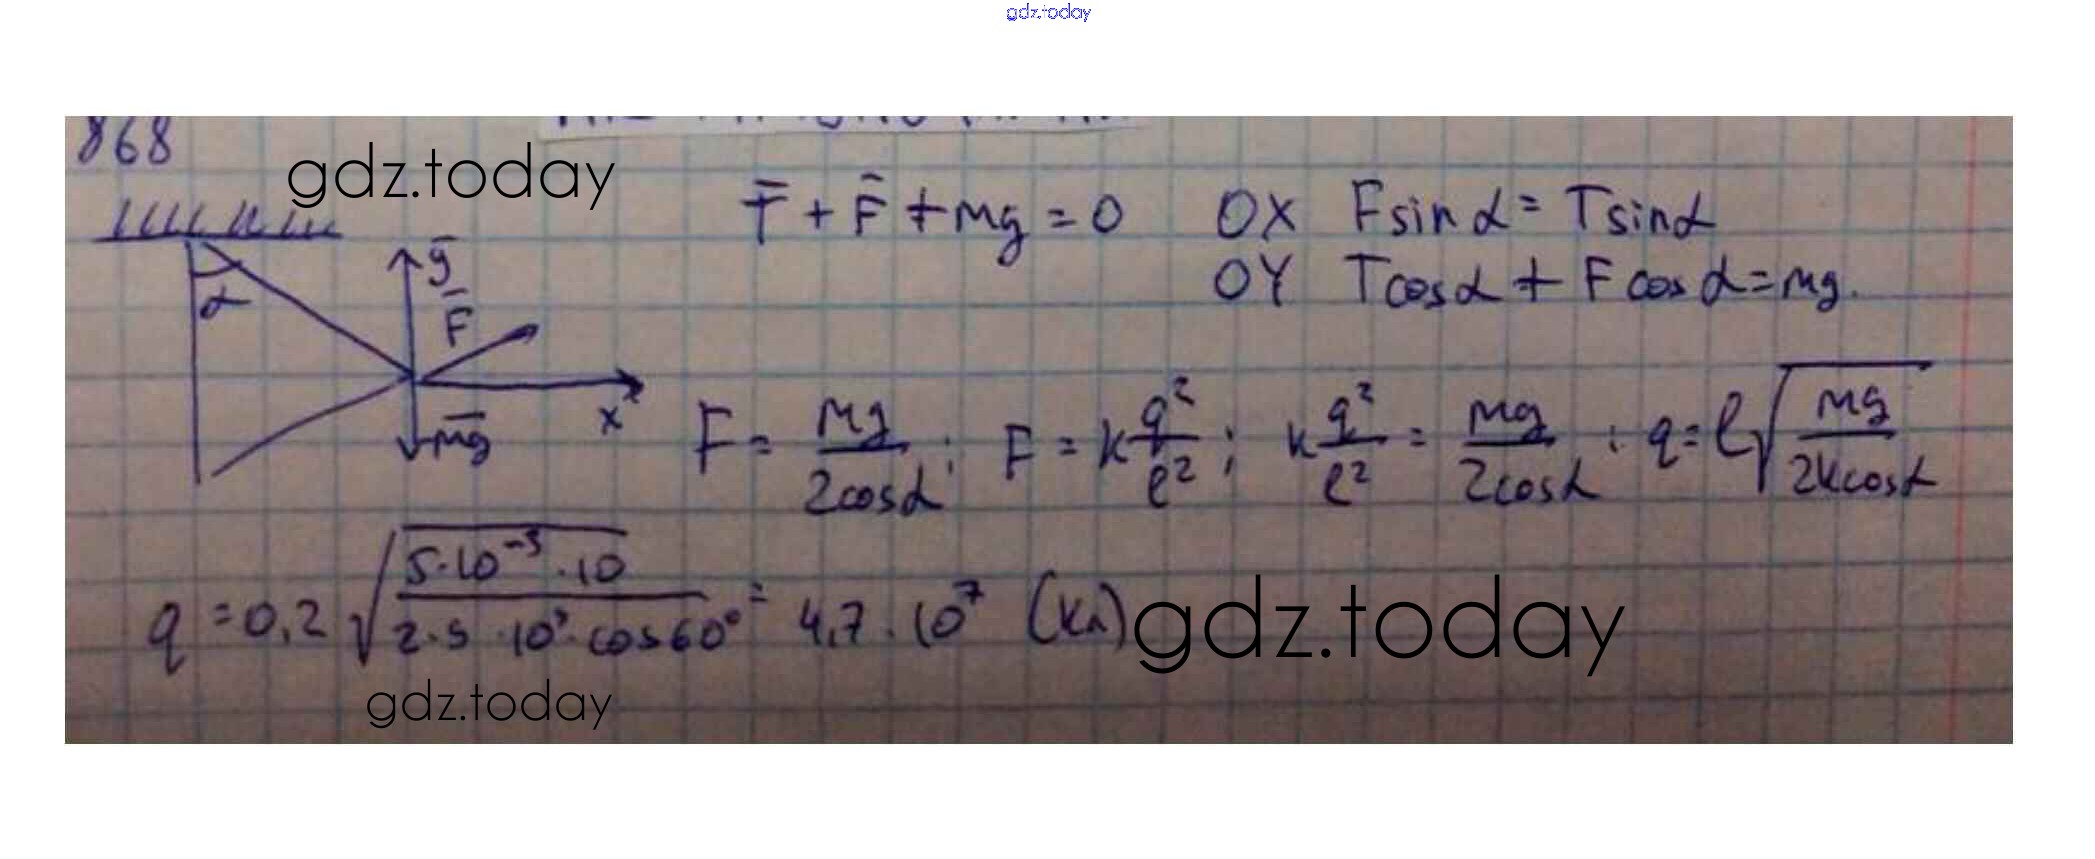 gdz.today
868
gdz.today
T̄ + F̄ + mg = 0 OX F sin α = T sin α
OY T cos α + F cos α = mg.
α
ȳ
F̄
x
m̄g
F = mg/2cosα; F = k q²/l²; k q²/l² = mg/2cosα; q = l√(mg/2kcosα)
q = 0,2 √(5·10⁻³·10/2·5·10⁹·cos60°) = 4,7·10⁷ (Кл)
gdz.today
gdz.today